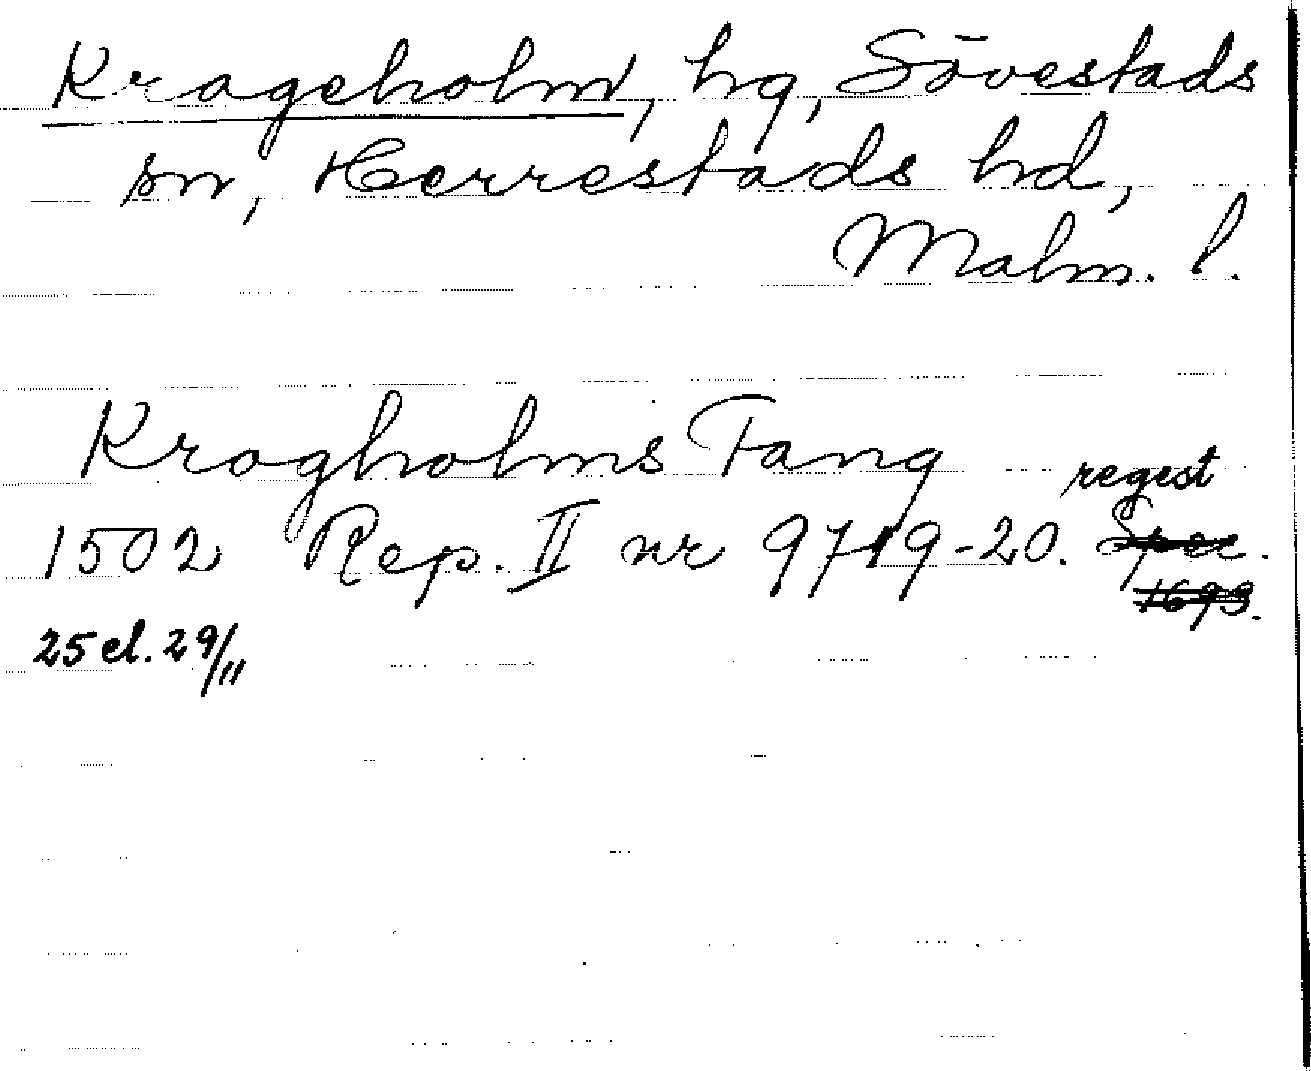 Krageholm, hg, Sövestads
sn, Herrestads hd,
Malm. l.
Krogholms Fang
regest
1502 Rep. II nr 9719-20. Spec.
1693.
25 el. 29/11